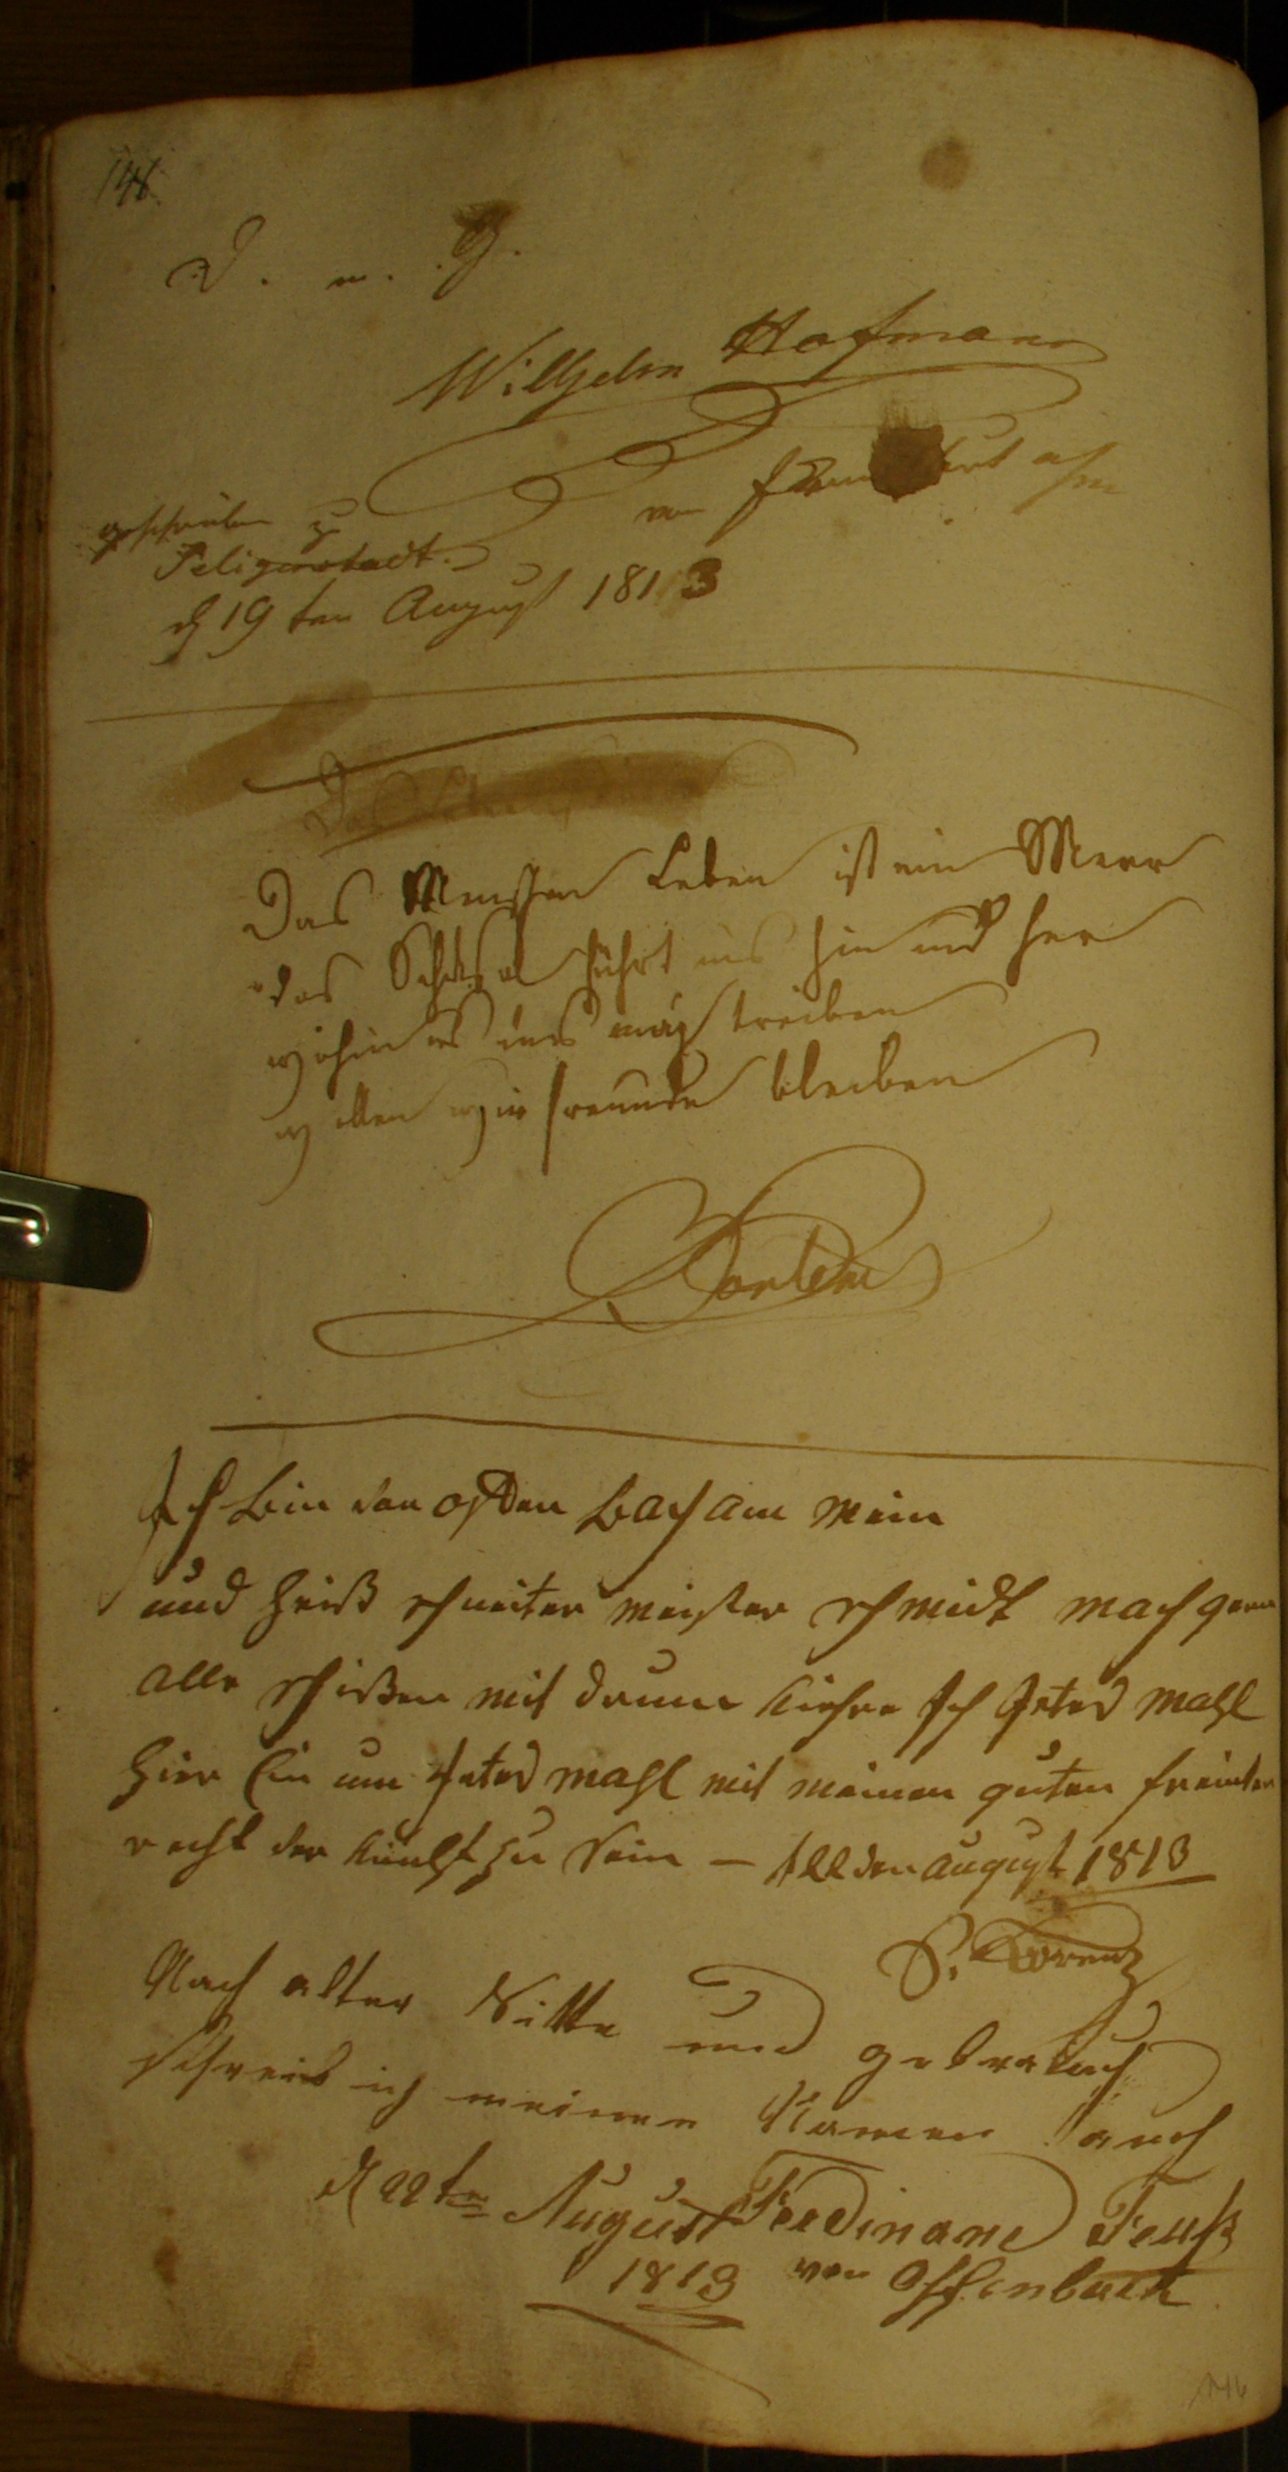 148
D. v. G.
Wilhelm Hofmann
von
geschrieben zu
Seligenstadt.
d 19ten August 1813
Das Menschen Leben ist ein Meer
das Schiksal führt uns hin und her
wohin es uns mag treiben
wollen wir freunde bleiben
Ich bin von offenbach am Mein
und heiß schneiter meister schmidt mach gern
alle mit drum kehre Ich Jetes mahl
hier ein um Jetes mahl mit meinen guten freinten
recht zu sein — den august 1813
S. Lorenz
Nach alter Sitte und gebrauch
schreib ich meinen Namen auch
d 22ten August Ferdinand
1813 von Offenbach
146